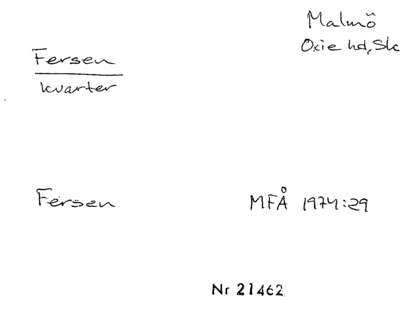 Malmö
Oxie hd, Sk
Fersen
kvarter
Fersen
MFÅ 1974:29
Nr 21462